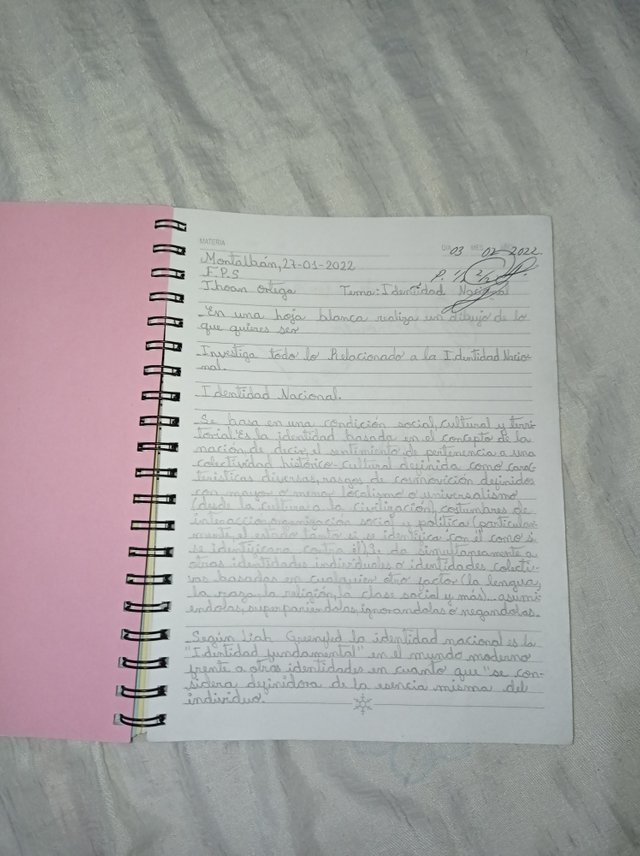 MATERIA
DÍA 03 MES 02 2022.
Montalbán, 27-01-2022
F.P.S
P. 1/2 2/2
Jhoan Ortega Tema: Identidad Nacional
En una hoja blanca realiza un dibujo de lo
que quieres ser
Investiga todo lo Relacionado a la Identidad Nacio-
nal.
Identidad Nacional.
Se basa en una condición social, cultural y terri-
torial. Es la identidad basada en el concepto de la
nación, de decir, el sentimiento de pertenencia a una
colectividad histórico-cultural definida como carac-
terísticas diversas, rasgos de cosmovición definidos
con mayor o menor localismo o universalismo
(desde la cultura a la civilización) costumbres de
interacción, organización social y política (particular-
mente, el estado tanto si se identifica con él como si
se identificara contra él). se da simultaneamente a
otras identidades individuales o identidades colecti-
vas basadas en cualquier otro factor (la lengua,
la raza, la religión, la clase social y más) asumi-
endolas, ignorandolas o negandolas.
Según Liah Greenfeld la identidad nacional es la
"Identidad fundamental" en el mundo moderno
frente a otras identidades en cuanto que "se con-
sidera definidora de la esencia misma del
individuo."